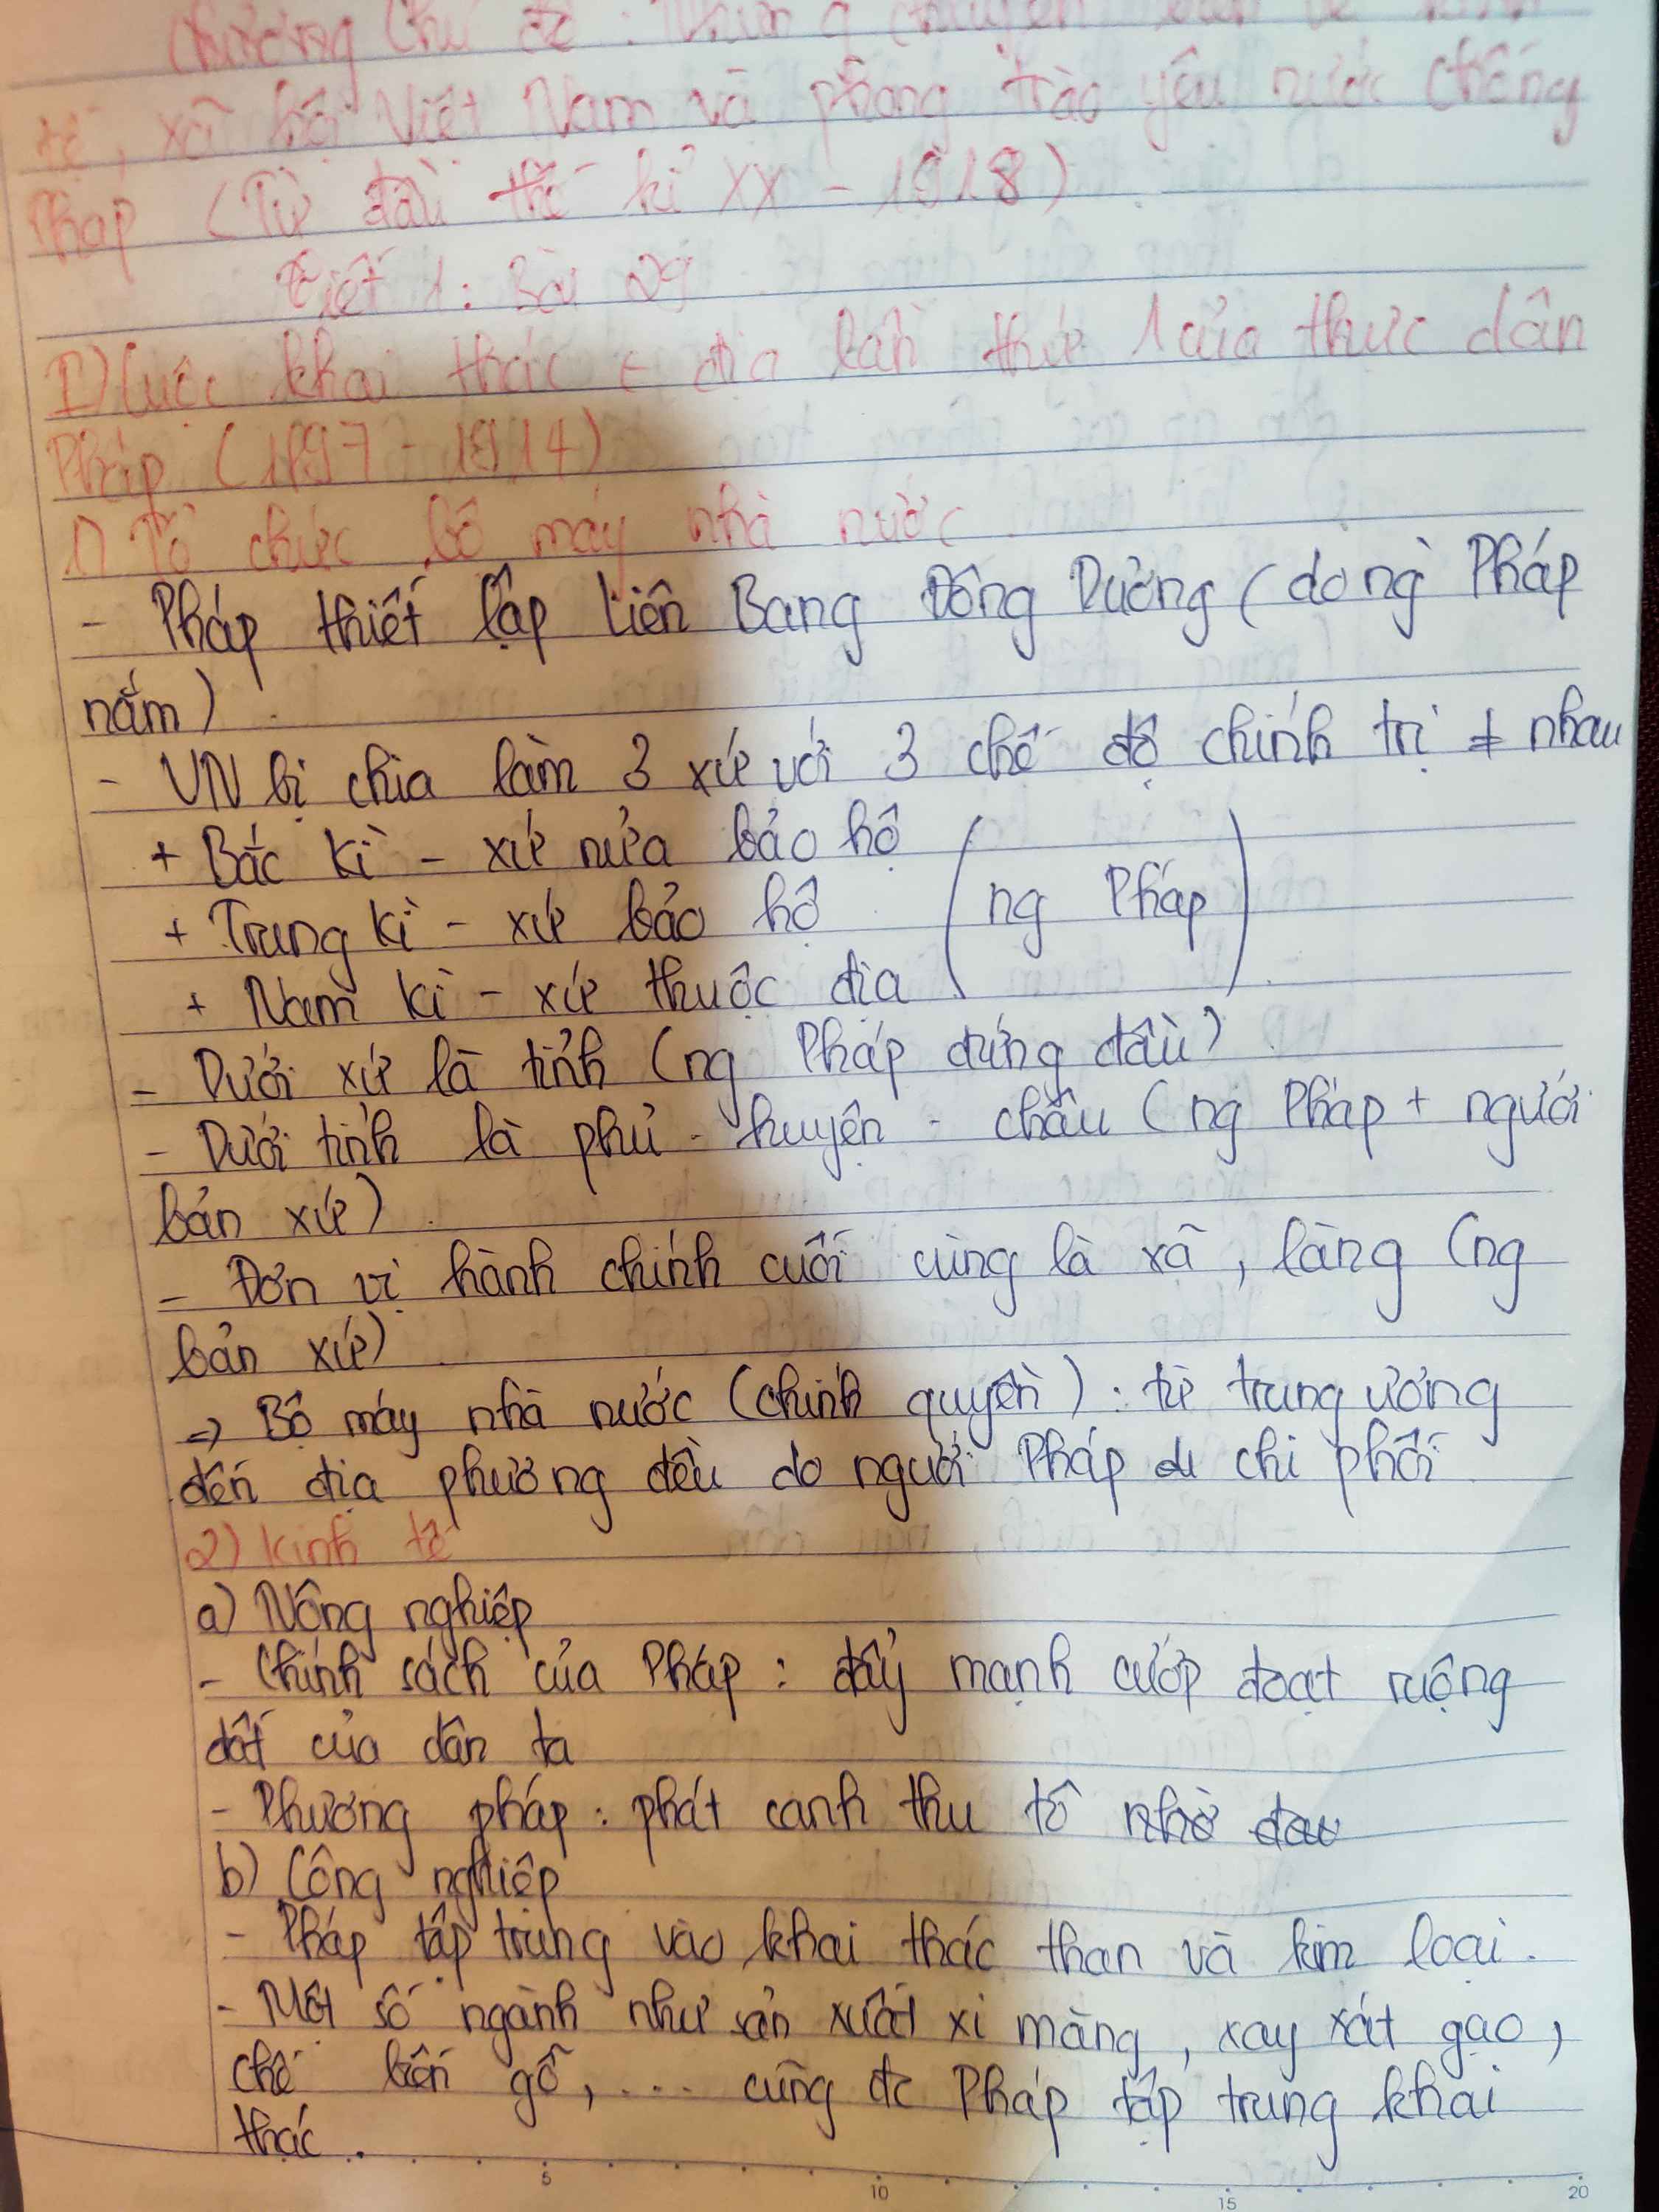 chương Chủ đề : Những chuyển
tế, xã hội Việt Nam và phong trào yêu nước chống
Pháp (Từ đầu thế kỉ XX - 1918)
Tiết 1: Bài 29
I) Cuộc khai thác t địa lần thứ 1 của thực dân
Pháp (1897 - 1914)
1) Tổ chức bộ máy nhà nước
- Pháp thiết lập Liên Bang Đông Dương (do ng Pháp
nắm)
- VN bị chia làm 3 xứ với 3 chế độ chính trị ≠ nhau
+ Bắc kì - xứ nửa bảo hộ
+ Trung kì - xứ bảo hộ (ng Pháp)
+ Nam kì - xứ thuộc địa
- Dưới xứ là tỉnh (ng Pháp đứng đầu)
- Dưới tỉnh là phủ - huyện - châu (ng Pháp + người
bản xứ)
- Đơn vị hành chính cuối cùng là xã, làng (ng
bản xứ)
=> Bộ máy nhà nước (chính quyền) : từ trung ương
đến địa phương đều do người Pháp chi phối
2) Kinh tế
a) Nông nghiệp
- Chính sách của Pháp : đẩy mạnh cướp đoạt ruộng
đất của dân ta
- Phương pháp : phát canh thu tô
b) Công nghiệp
- Pháp tập trung vào khai thác than và kim loại.
- Một số ngành như sản xuất xi măng, xay xát gạo,
chế biến gỗ, ... cũng đc Pháp tập trung khai
thác.
5 10 15 20